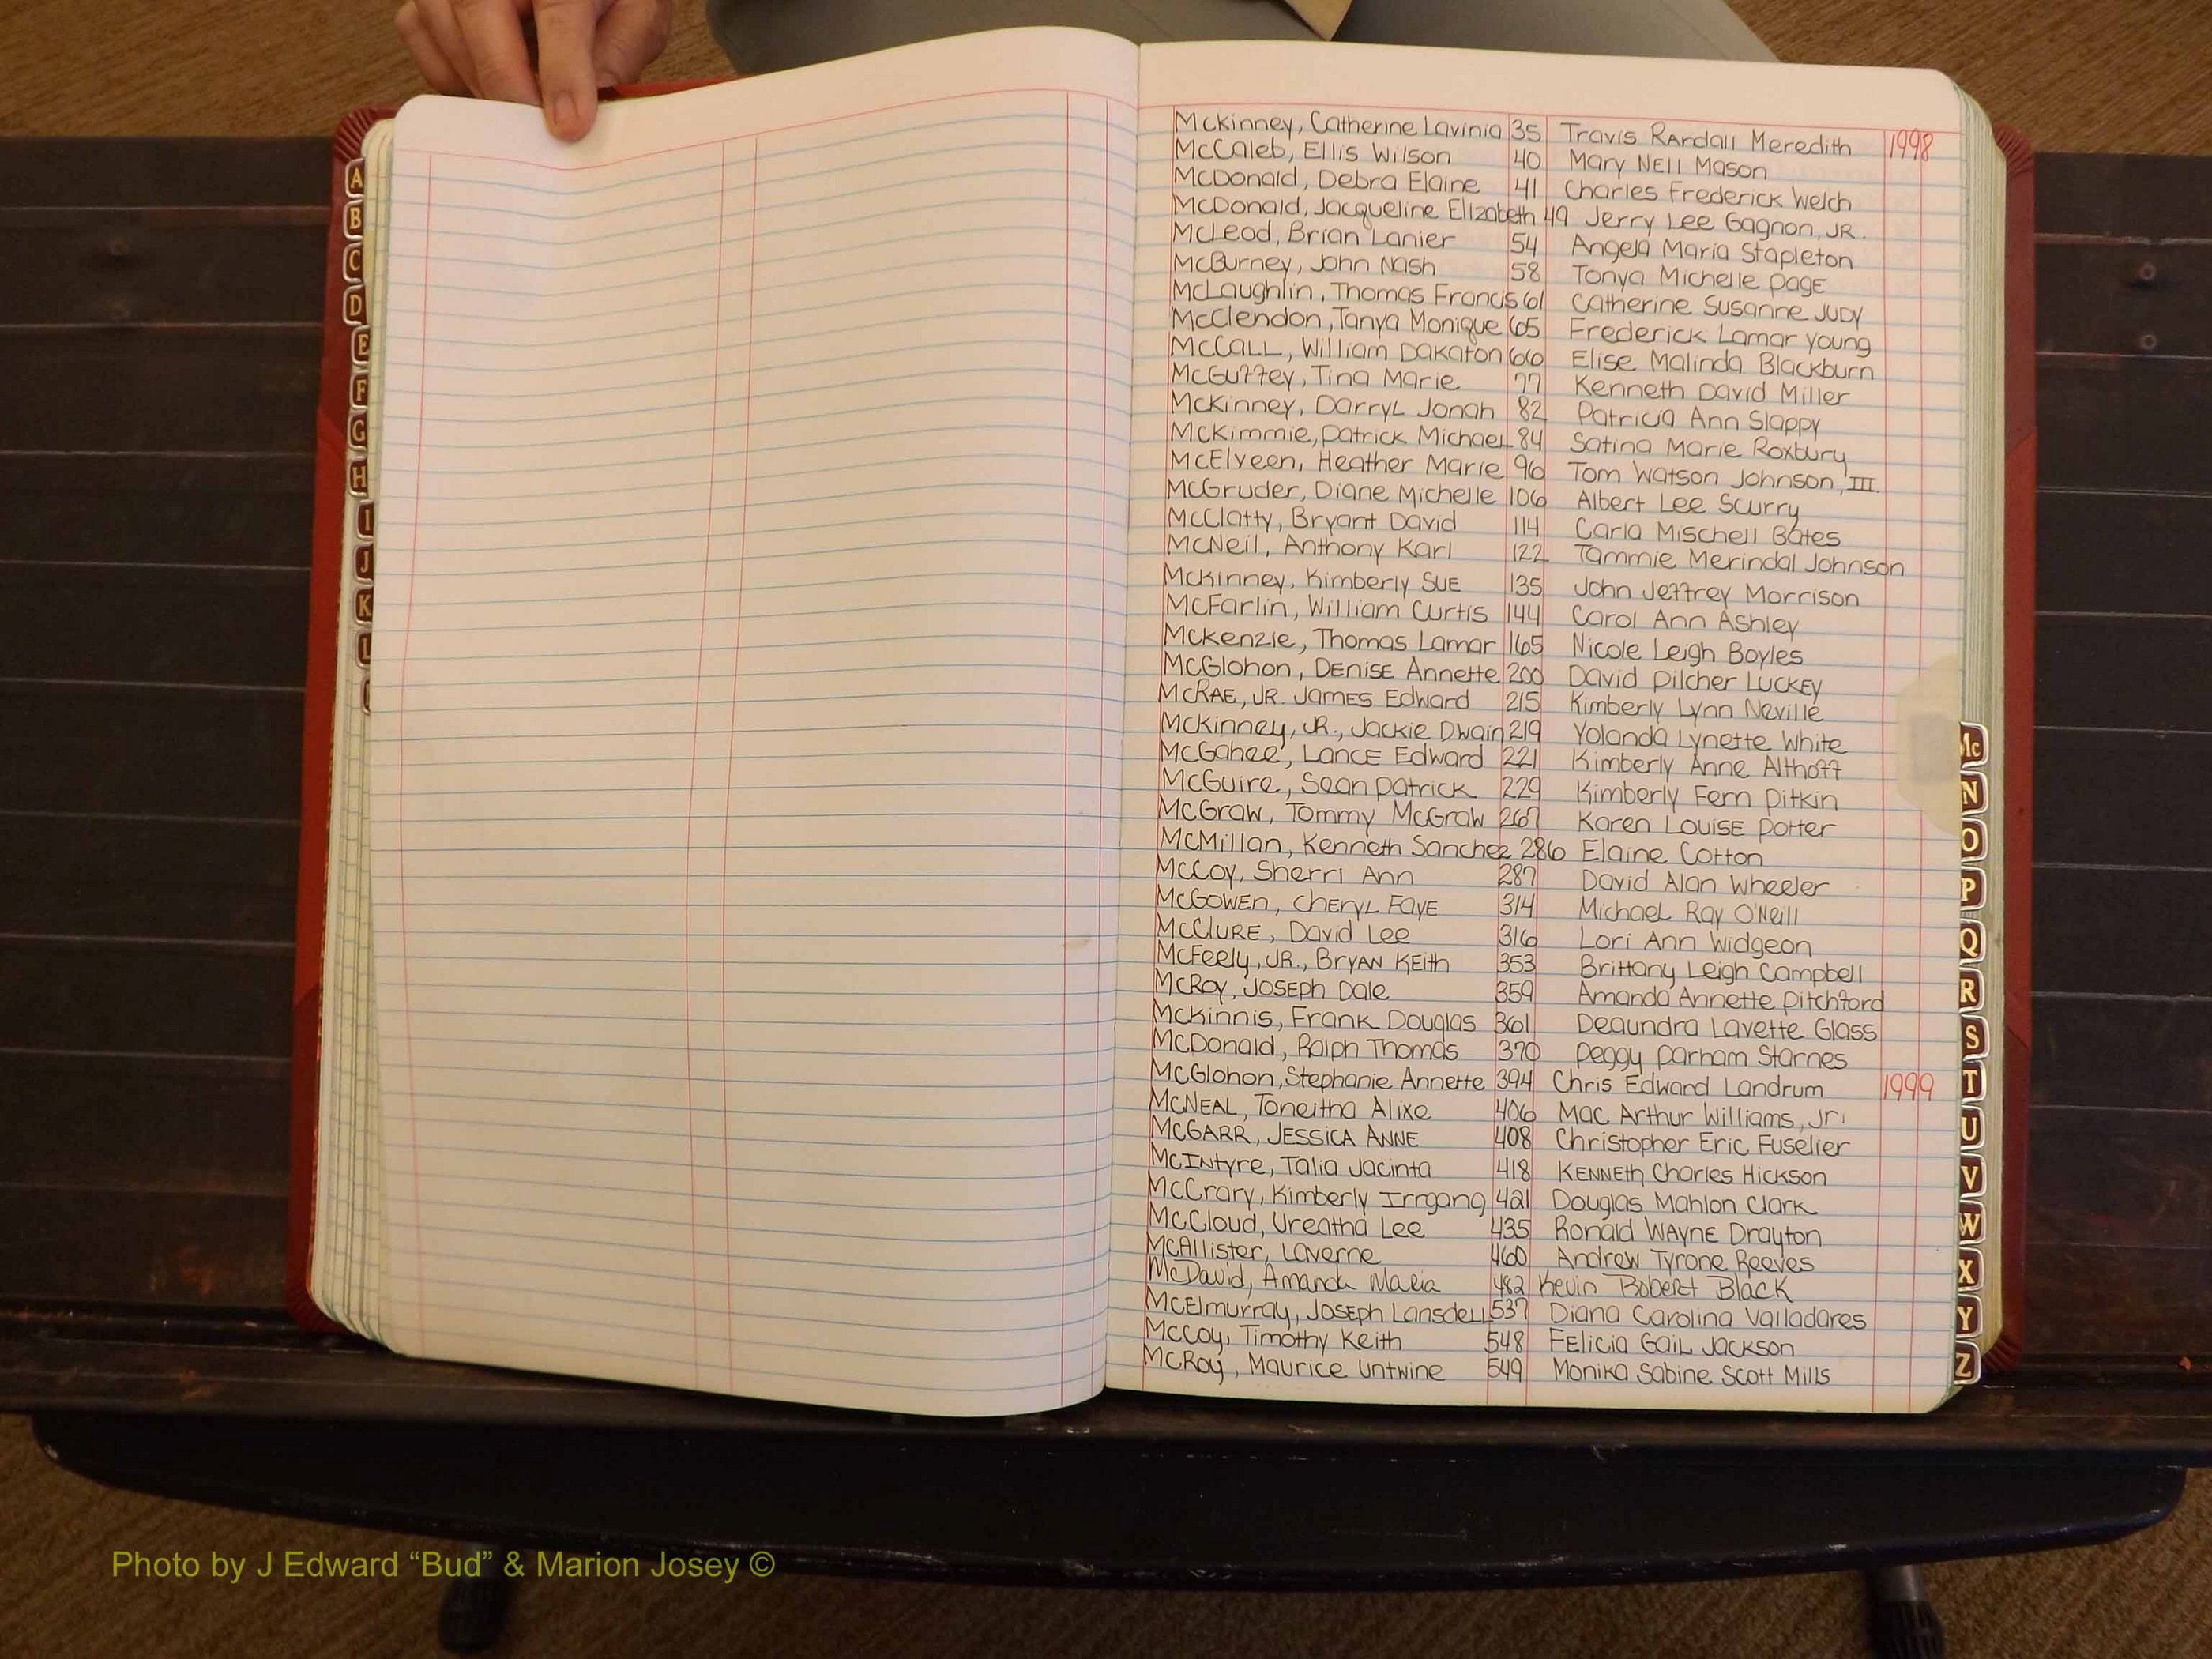 McKinney, Catherine Lavinia 35 Travis Randall Meredith 1998
McCaleb, Ellis Wilson 40 Mary Nell Mason
McDonald, Debra Elaine 41 Charles Frederick Welch
McDonald, Jacqueline Elizabeth 49 Jerry Lee Gagnon, JR.
McLeod, Brian Lanier 54 Angela Maria Stapleton
McBurney, John Nash 58 Tonya Michelle Page
McLaughlin, Thomas Francis 61 Catherine Susanne Judy
McClendon, Tanya Monique 65 Frederick Lamar Young
McCall, William Dakaton 66 Elise Malinda Blackburn
McGuffey, Tina Marie 77 Kenneth David Miller
McKinney, Darryl Jonah 82 Patricia Ann Slappy
McKimmie, Patrick Michael 84 Satina Marie Roxbury
McElveen, Heather Marie 96 Tom Watson Johnson, III.
McGruder, Diane Michelle 106 Albert Lee Scurry
McClatty, Bryant David 114 Carla Mischell Bates
McNeil, Anthony Karl 122 Tammie Merindal Johnson
McKinney, Kimberly Sue 135 John Jeffrey Morrison
McFarlin, William Curtis 144 Carol Ann Ashley
McKenzie, Thomas Lamar 165 Nicole Leigh Boyles
McGlohon, Denise Annette 200 David Pilcher Luckey
McRae, JR. James Edward 215 Kimberly Lynn Neville
McKinney, JR., Jackie Dwain 219 Yolanda Lynette White
McGahee, Lance Edward 221 Kimberly Anne Althoff
McGuire, Sean Patrick 229 Kimberly Fern Pitkin
McGraw, Tommy McGraw 267 Karen Louise Potter
McMillan, Kenneth Sanchez 286 Elaine Cotton
McCoy, Sherri Ann 287 David Alan Wheeler
McGowen, Cheryl Faye 314 Michael Ray O'Neill
McClure, David Lee 316 Lori Ann Widgeon
McFeely, JR., Bryan Keith 353 Brittany Leigh Campbell
McRoy, Joseph Dale 359 Amanda Annette Pitchford
McKinnis, Frank Douglas 361 Deaundra Lavette Glass
McDonald, Ralph Thomas 370 Peggy Parham Starnes
McGlohon, Stephanie Annette 394 Chris Edward Landrum 1999
McNeal, Toneitha Alixe 406 Mac Arthur Williams, Jr.
McGarr, Jessica Anne 408 Christopher Eric Fuselier
McIntyre, Talia Jacinta 418 Kenneth Charles Hickson
McCrary, Kimberly Irrgang 421 Douglas Mahlon Clark
McCloud, Ureatha Lee 435 Ronald Wayne Drayton
McAllister, Laverne 460 Andrew Tyrone Reeves
McDavid, Amanda Maria 482 Kevin Bobert Black
McElmurray, Joseph Lansdell 537 Diana Carolina Valladares
McCoy, Timothy Keith 548 Felicia Gail Jackson
McRoy, Maurice Untwine 549 Monika Sabine Scott Mills
A
B
C
D
E
F
G
H
I
J
K
L
Mc
N
O
P
Q
R
S
T
U
V
W
X
Y
Z
Photo by J Edward “Bud” & Marion Josey ©